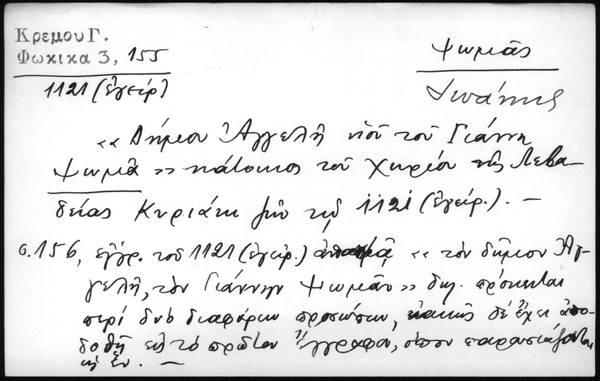 Κρεμου Γ.
Φωκικα 3, 155
Ψωμᾶς
1121 (ἐγείρ)
«Δήμιον Ἀγγελῆ υἱοῦ τοῦ Γιάννη
Ψωμᾶ» κάτοικος τοῦ Χωρίου τῆς Λεβα-
δείας Κυριάκι τῷ 1121 (ἐγείρ.). —
σ. 156, ἐγγρ. τοῦ 1121 (ἐγείρ.) «τὸν δήμιον Ἀγ-
γελῆ, τὸν Γιάννην Ψωμᾶν» δηλ. πρόκειται
περὶ δύο διαφόρων προσώπων, κακῶς δὲ ἔχει ἀπο-
δοθῆ εἰς τὸ πρῶτον ἔγγραφον, ὅπου παρουσιάζονται
ὡς ἕν. —